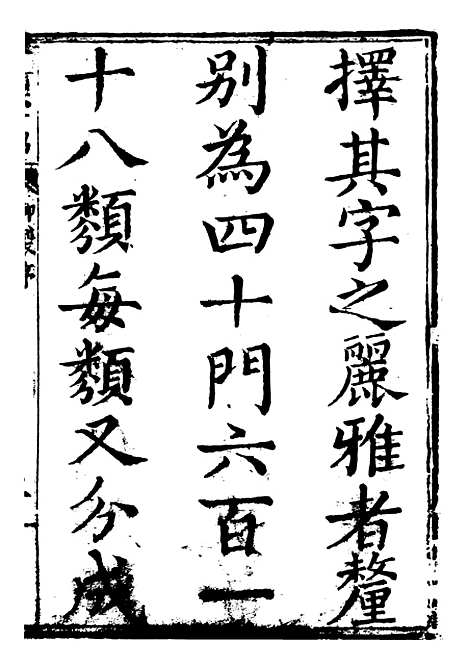 擇其字之麗雅者釐
别為四十門六百一
十八類每類又分成